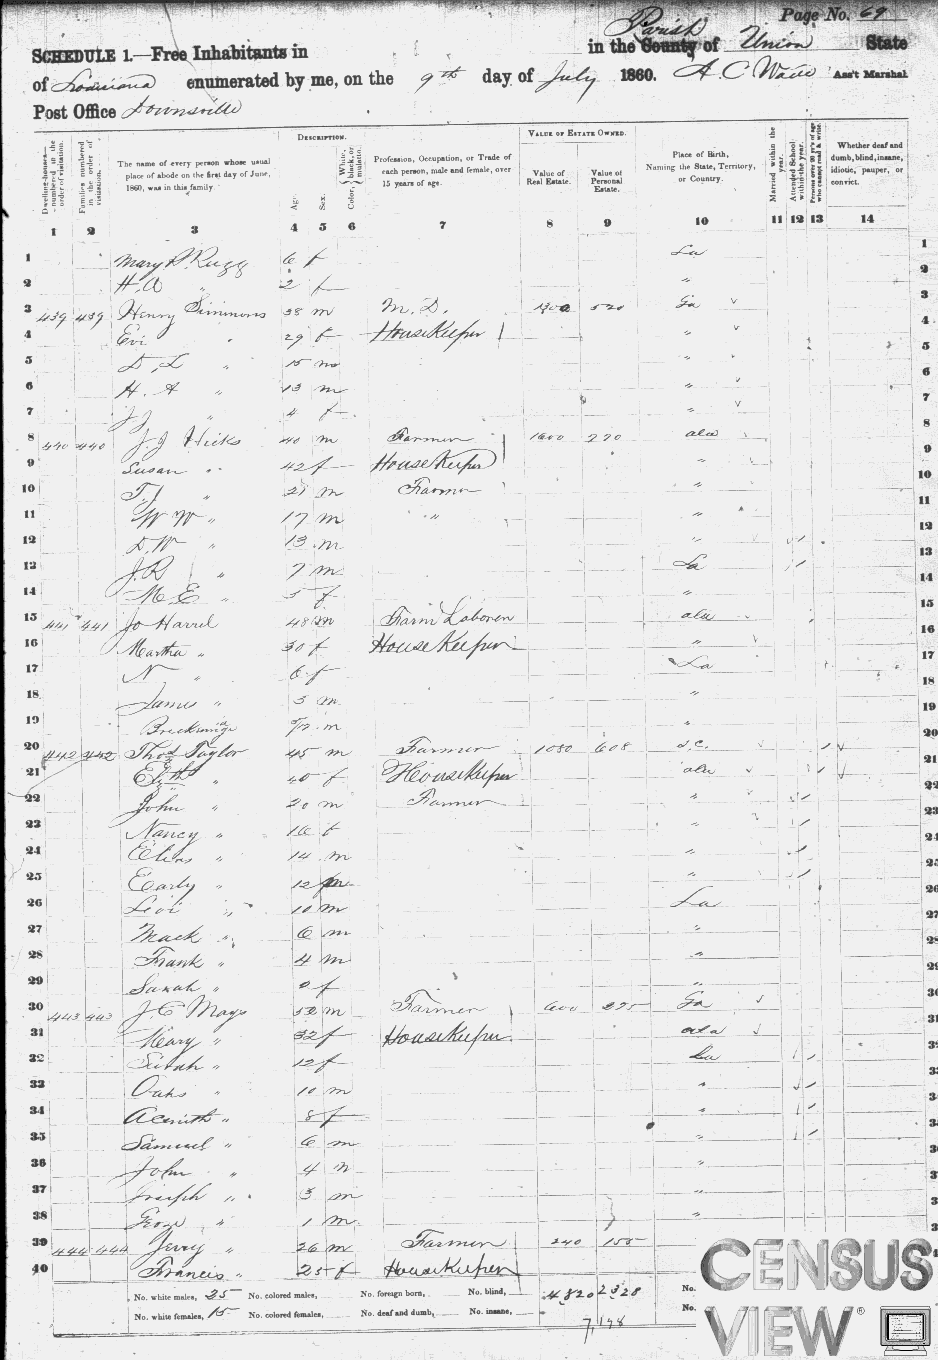 Page No. 69
SCHEDULE 1.—Free Inhabitants in in the County Parish of Union State
of Louisiana enumerated by me, on the 9th day of July 1860. A. C. Ass't Marshal
Post Office Downsville
Dwelling-houses—numbered in the order of visitation.
Families numbered in the order of visitation.
The name of every person whose usual place of abode on the first day of June, 1860, was in this family.
DESCRIPTION.
Age.
Sex.
Color, White, black, or mulatto.
Profession, Occupation, or Trade of each person, male and female, over 15 years of age.
VALUE OF ESTATE OWNED.
Value of Real Estate.
Value of Personal Estate.
Place of Birth, Naming the State, Territory, or Country.
Married within the year.
Attended School within the year.
Persons over 20 y'rs of age who cannot read & write.
Whether deaf and dumb, blind, insane, idiotic, pauper, or convict.
1 2 3 4 5 6 7 8 9 10 11 12 13 14
1 Mary Rugg 6 f La 1
2 H. A " 2 f " 2
3 439 439 Henry Simmons 38 m M. D. 520 Ga 3
4 Evi " 29 f HouseKeeper " 4
5 D. L " 15 m " 5
6 H. A " 13 m " 6
7 J J " 4 f " 7
8 440 440 J. J Hicks 40 m Farmer 1600 270 ala 8
9 Susan " 42 f HouseKeeper " 9
10 T. J " 21 m Farmer " 10
11 W W " 17 m " " 11
12 D. W " 13 m " 12
13 J. R " 7 m La 13
14 M. E " 5 f " 14
15 441 441 Jo Harrel 48 m Farm Laborer ala 15
16 Martha " 30 f HouseKeeper " 16
17 N " 6 f La 17
18 James " 3 m " 18
19 m " 19
20 442 442 Thos Taylor 45 m Farmer 1080 608 S.C. 20
21 Elizth " 40 f HouseKeeper ala 21
22 John " 20 m Farmer " 22
23 Nancy " 16 f " 23
24 " 14 m " 24
25 Early " 12 m " 25
26 Levi " 10 m La 26
27 Mack " 6 m " 27
28 Frank " 4 m " 28
29 Sarah " f " 29
30 443 443 J C Mays 52 m Farmer 600 295 Ga 30
31 Mary " 32 f HouseKeeper ala 31
32 Sarah " 12 f La
33 " 10 m "
34 " 8 f "
35 Samuel " 6 m "
36 John " 4 m "
37 Joseph " 3 m "
38 " 1 m "
39 444 444 Jerry " 26 m Farmer 240 155
40 Francis " 25 f HouseKeeper
No. white males, 25 No. colored males, No. foreign born, No. blind, 4820 2328 No.
No. white females, 15 No. colored females, No. deaf and dumb, No. insane, No.
7,148
CENSUS
VIEW®